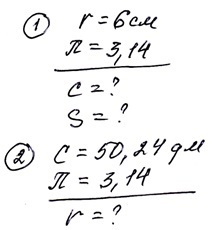 ① r = 6 см
π = 3,14
C = ?
S = ?
② C = 50,24 дм
π = 3,14
r = ?